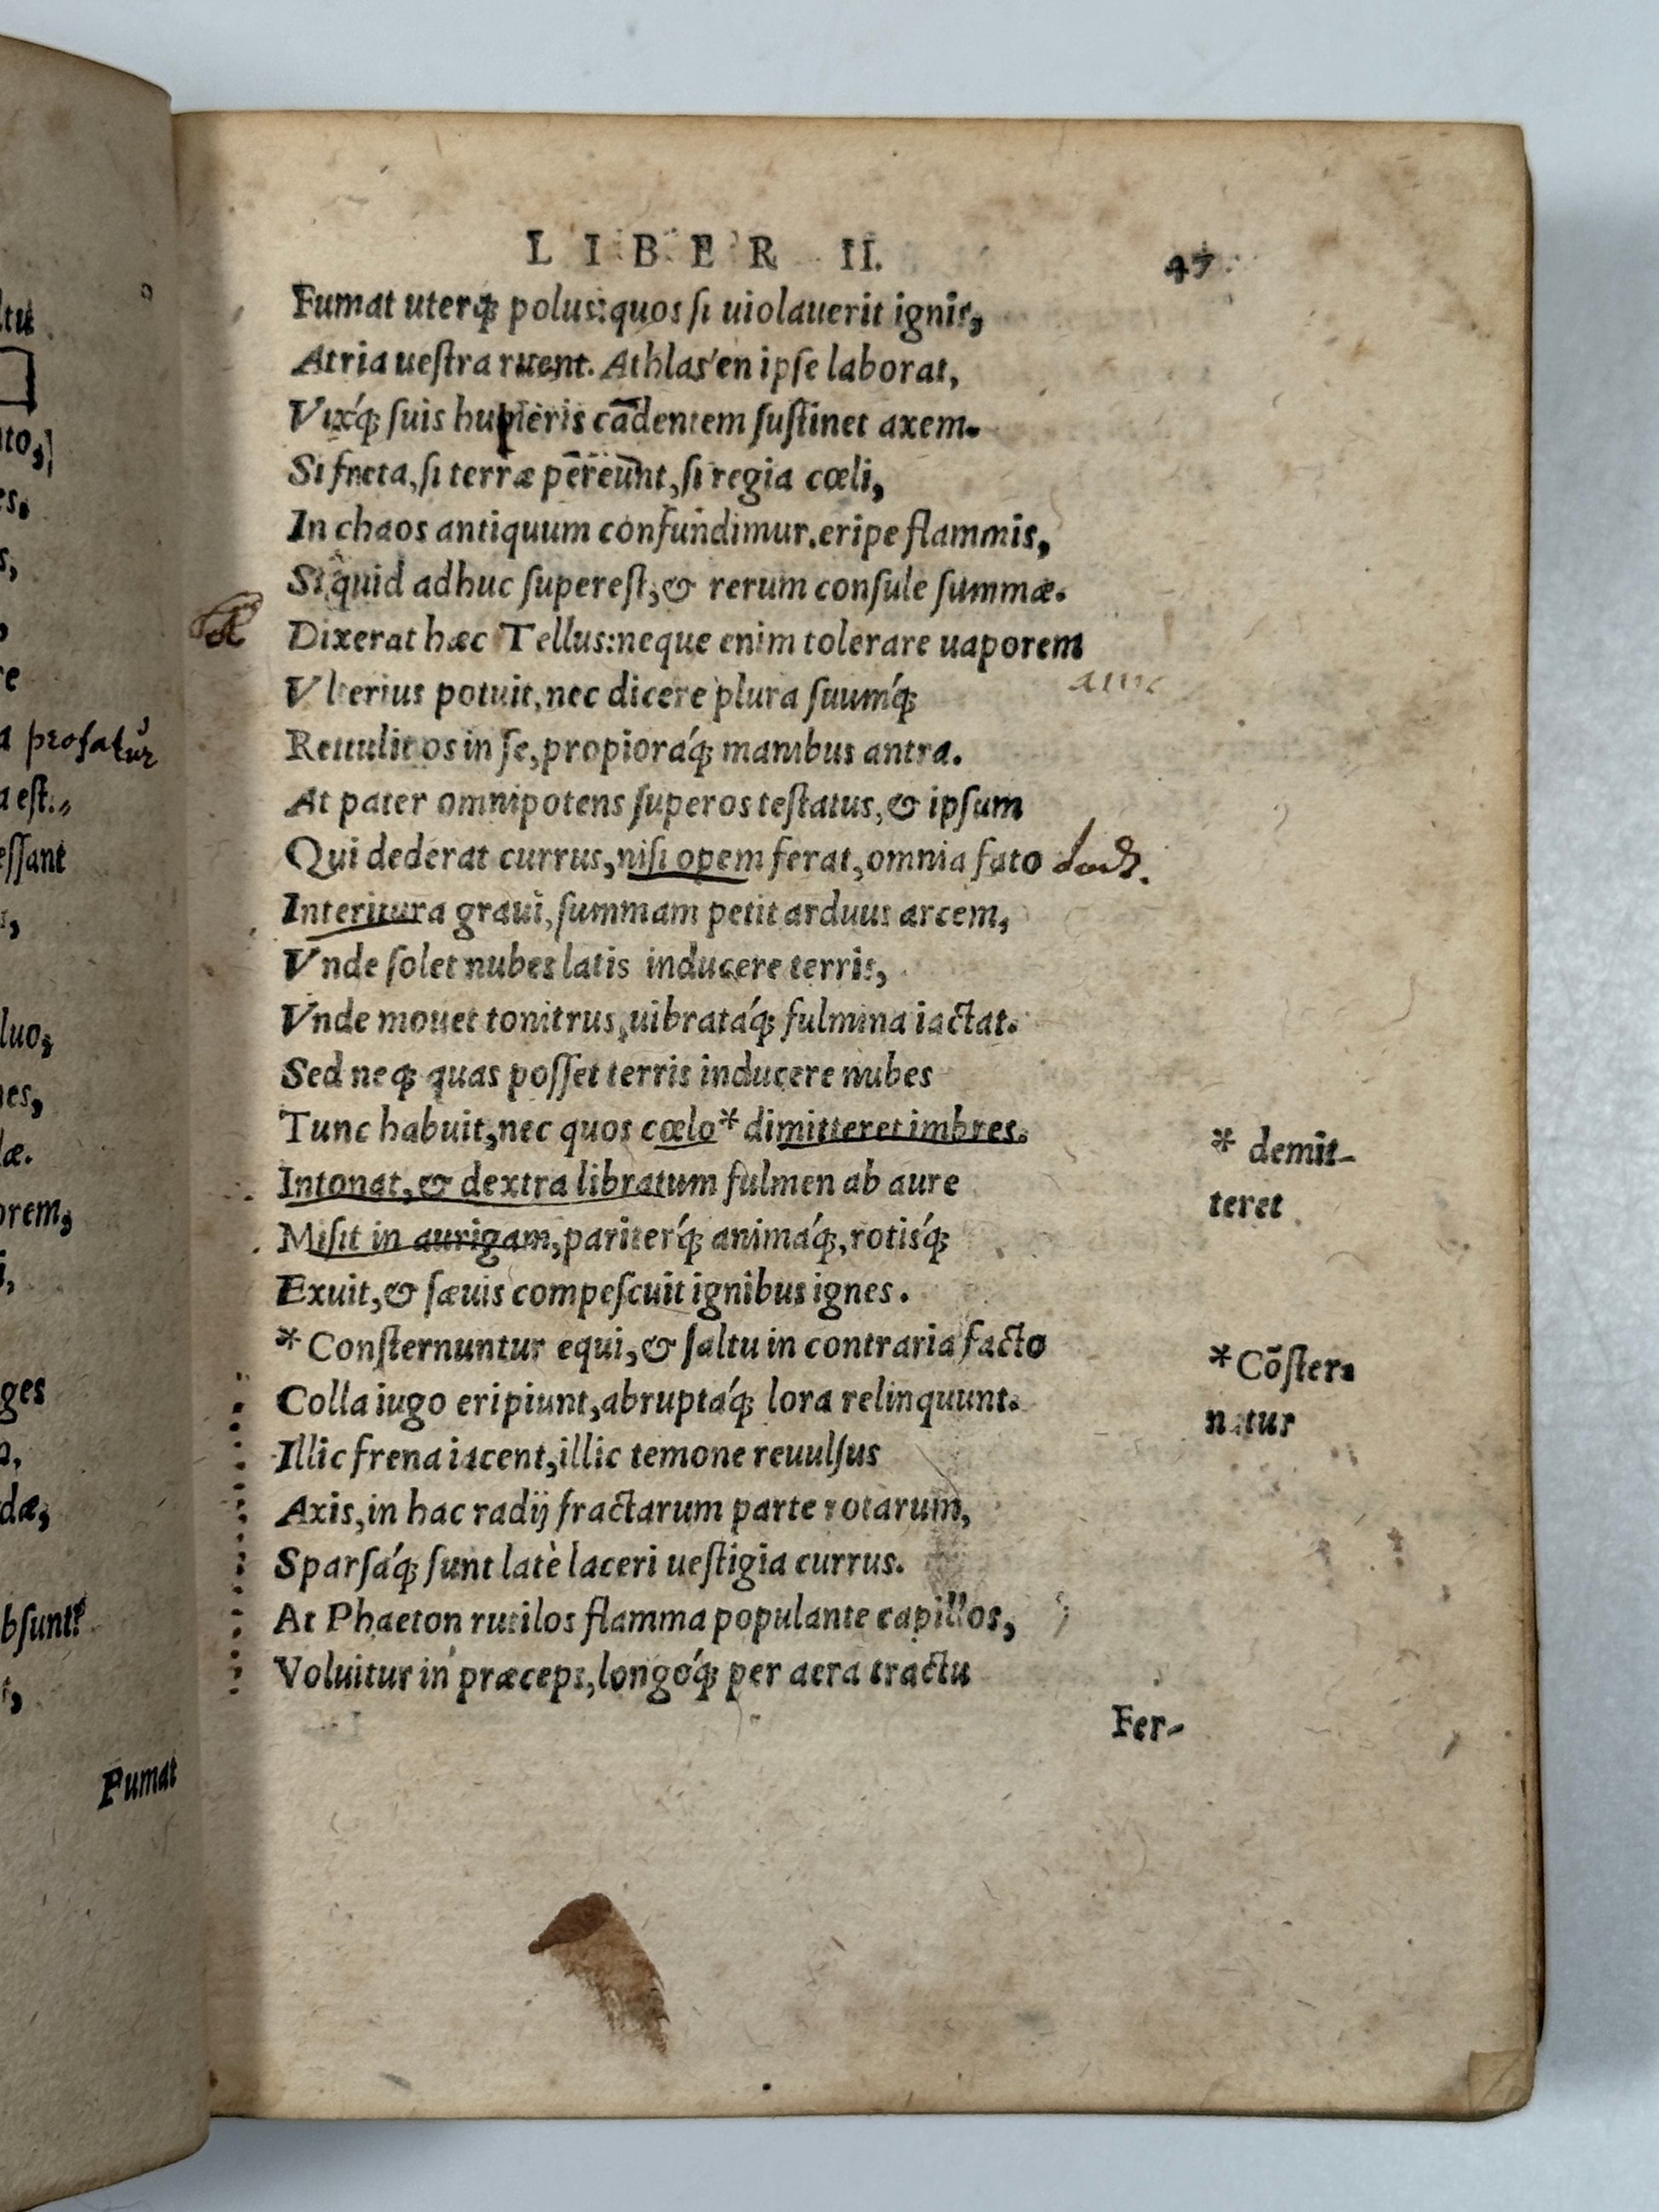 LIBER II. 47
Fumat uterq́; polus: quos ſi uiolauerit ignis,
Atria ueſtra ruent. Athlas en ipſe laborat,
Vixq́; ſuis humeris cadentem ſuſtinet axem.
Si freta, ſi terræ pereunt, ſi regia cœli,
In chaos antiquum confundimur. eripe flammis,
Si quid adhuc ſupereſt, & rerum conſule ſummæ.
Dixerat hæc Tellus: neque enim tolerare uaporem
Vlterius potuit, nec dicere plura ſuumq́;
Rettulit os in ſe, propioraq́; manibus antra.
At pater omnipotens ſuperos teſtatus, & ipſum
Qui dederat currus, niſi opem ferat, omnia fato
Interitura graui, ſummam petit arduus arcem,
Vnde ſolet nubes latis inducere terris,
Vnde mouet tonitrus, uibratáq; fulmina iactat.
Sed neq; quas poſſet terris inducere nubes
Tunc habuit, nec quos cœlo * dimitteret imbres.
* demit-
teret
Intonat, & dextra libratum fulmen ab aure
Miſit in aurigam, pariterq́; animáq;, rotiſq́;
Exuit, & ſæuis compeſcuit ignibus ignes.
* Conſternuntur equi, & ſaltu in contraria facto
* Cõſter-
natur
Colla iugo eripiunt, abruptáq; lora relinquunt.
Illic frena iacent, illic temone reuulſus
Axis, in hac radij fractarum parte rotarum,
Sparſáq; ſunt latè laceri ueſtigia currus.
At Phaeton rutilos flamma populante capillos,
Voluitur in præceps, longóq; per aera tractu
Fer-
profatur
eſt.
eſſant
Fumat